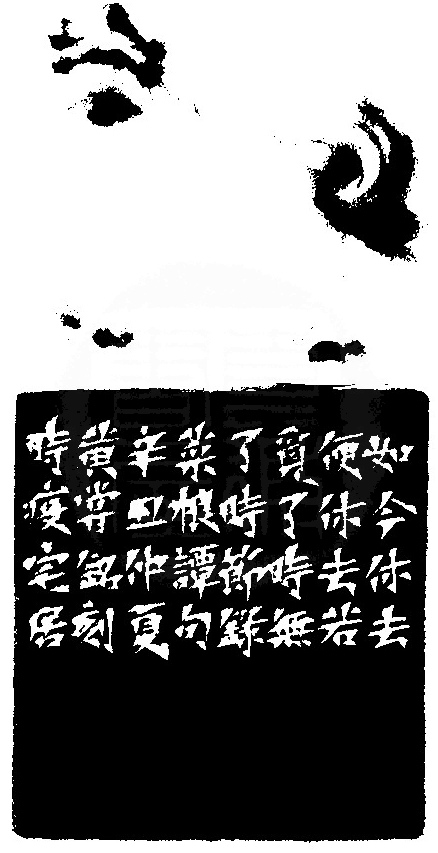 如今休去
便休去若
覓了時無
了時節錄
菜根譚句
辛丑仲夏
黃嘗銘刻
時疫宅居